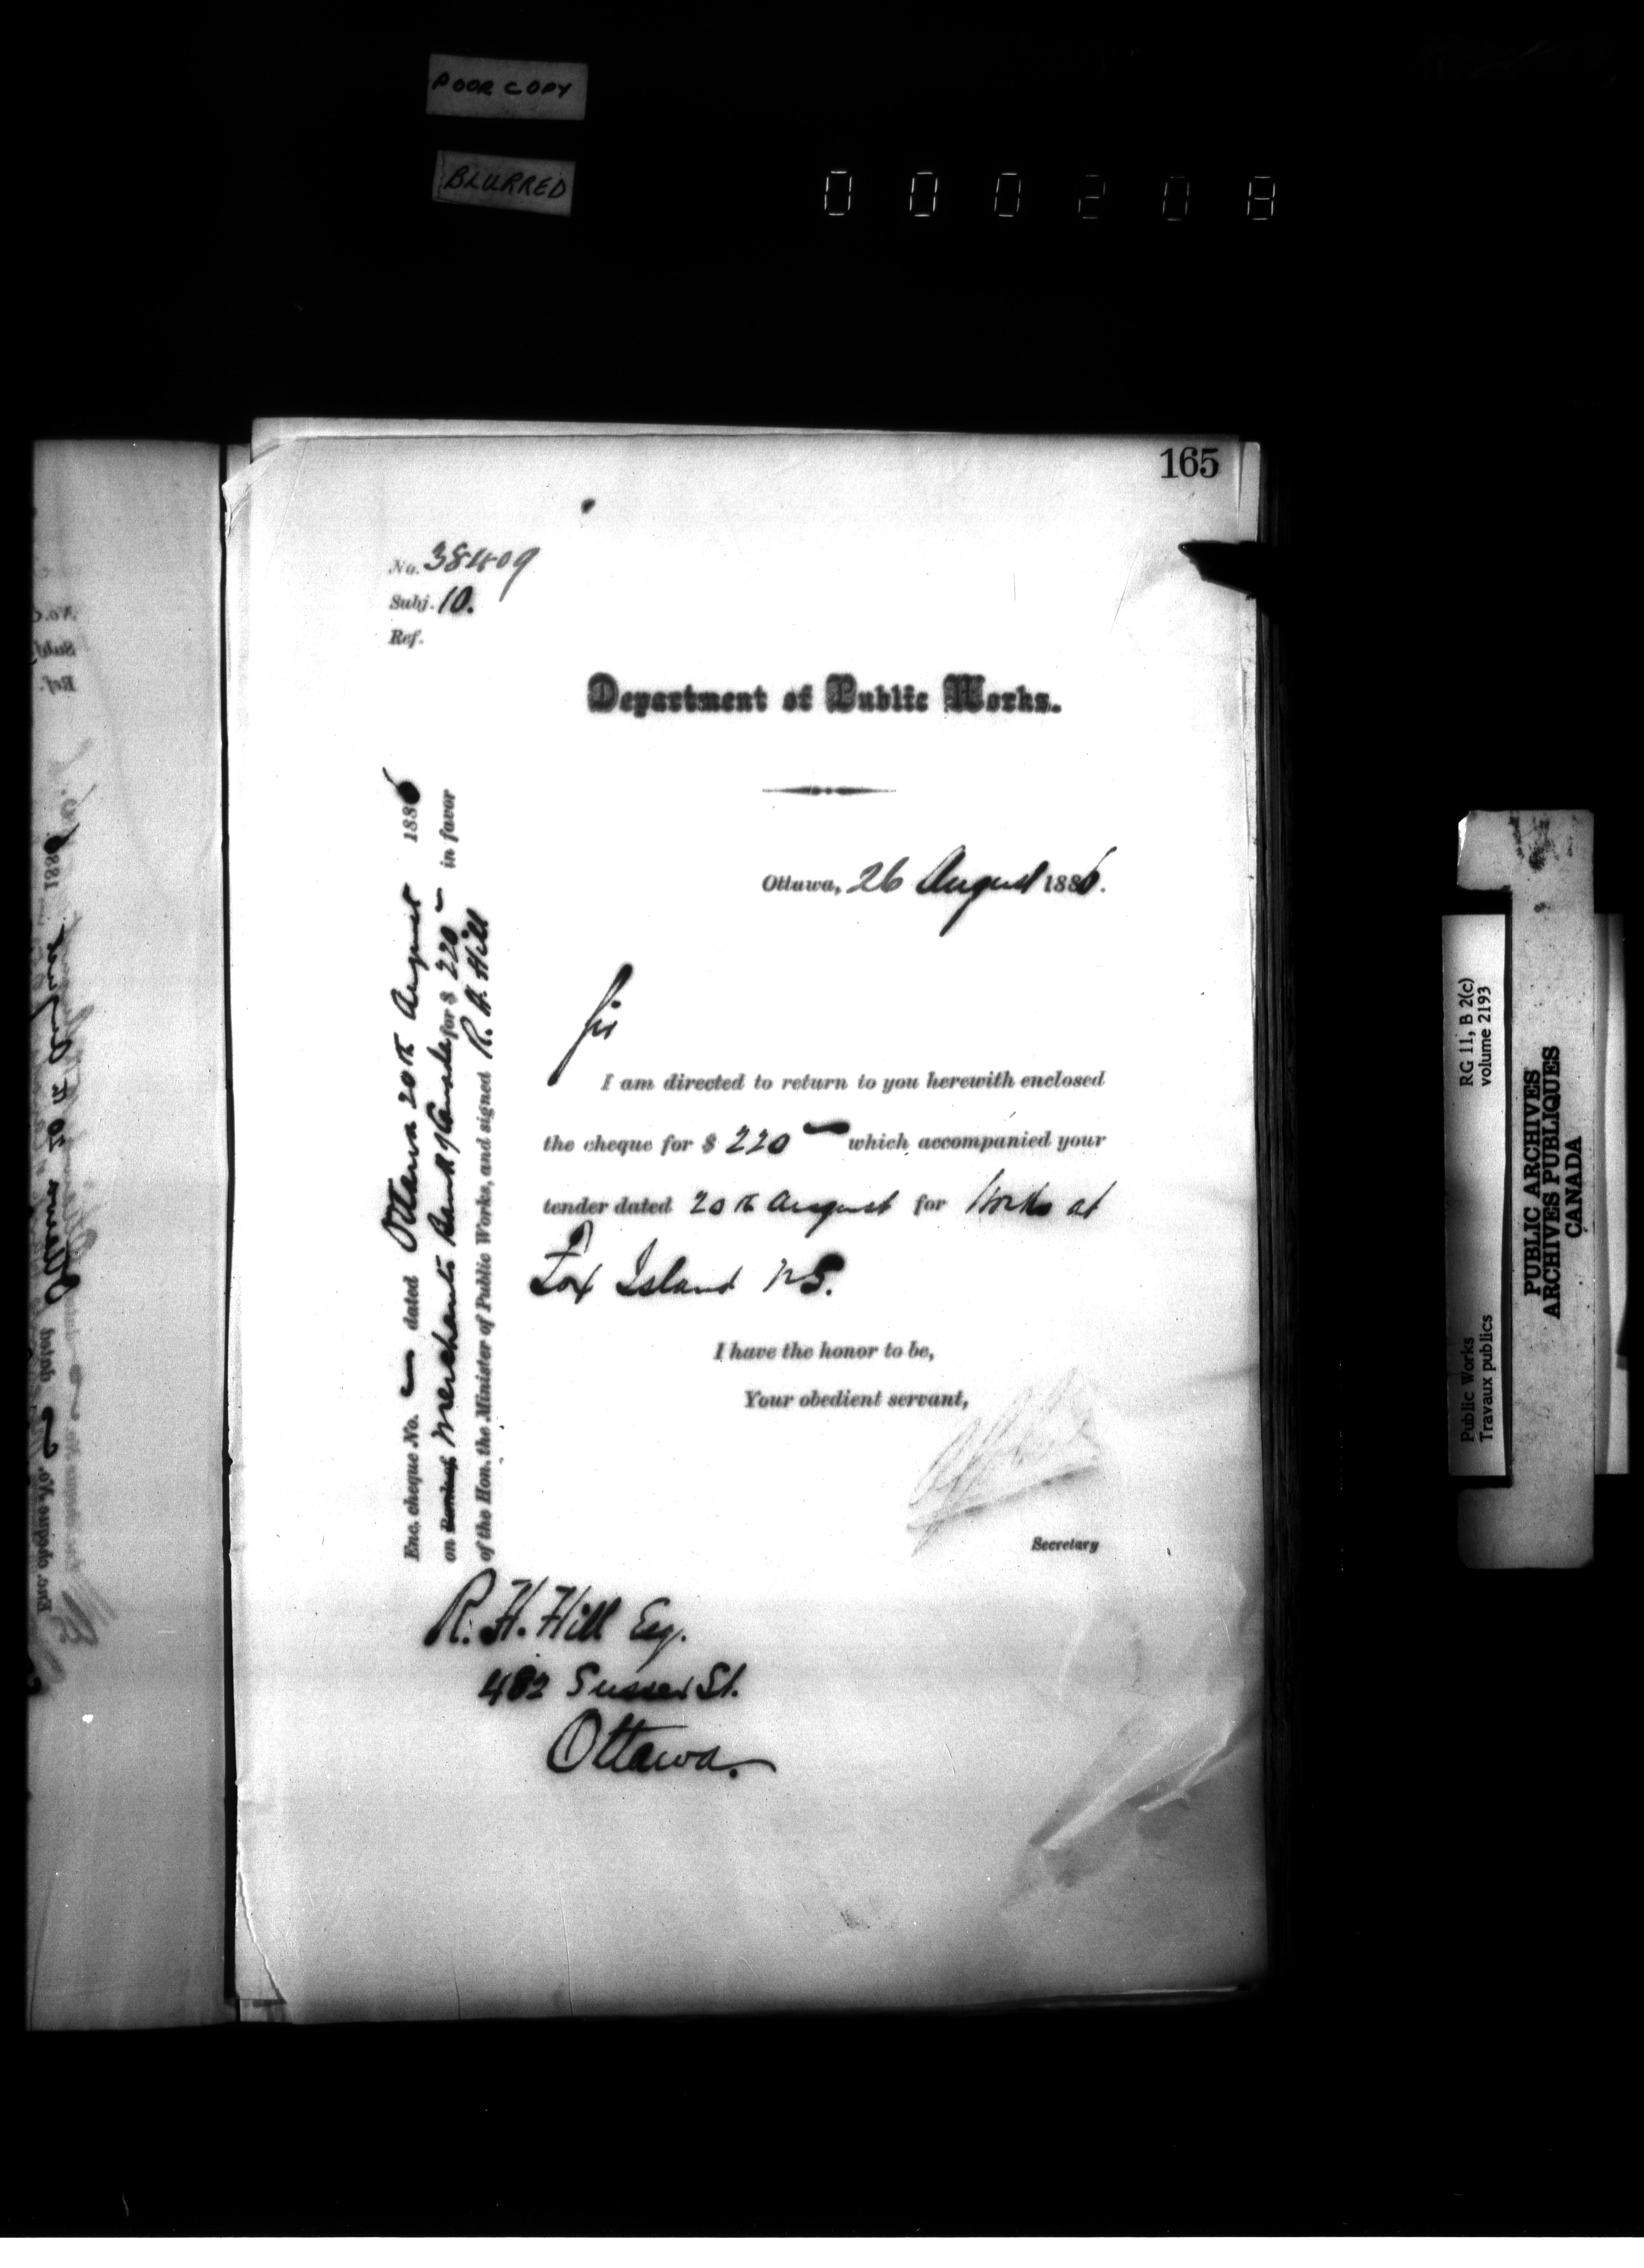 POOR COPY
BLURRED
000208
165
No. 38409
Subj. 10.
Ref.
Department of Public Works.
Ottawa, 26 August 1886.
Sir
I am directed to return to you herewith enclosed
the cheque for $ 220 — which accompanied your
tender dated 20th August for Works at
Fox Island N S.
I have the honor to be,
Your obedient servant,
Secretary
Enc. cheque No. — dated Ottawa 20th August 1886
on Merchants Bank of Canada for $ 220 — in favor
of the Hon. the Minister of Public Works, and signed R. H. Hill
R. H. Hill Esq.
482 Sussex St.
Ottawa.
Public Works
Travaux publics
RG 11, B 2(c)
volume 2193
PUBLIC ARCHIVES
ARCHIVES PUBLIQUES
CANADA